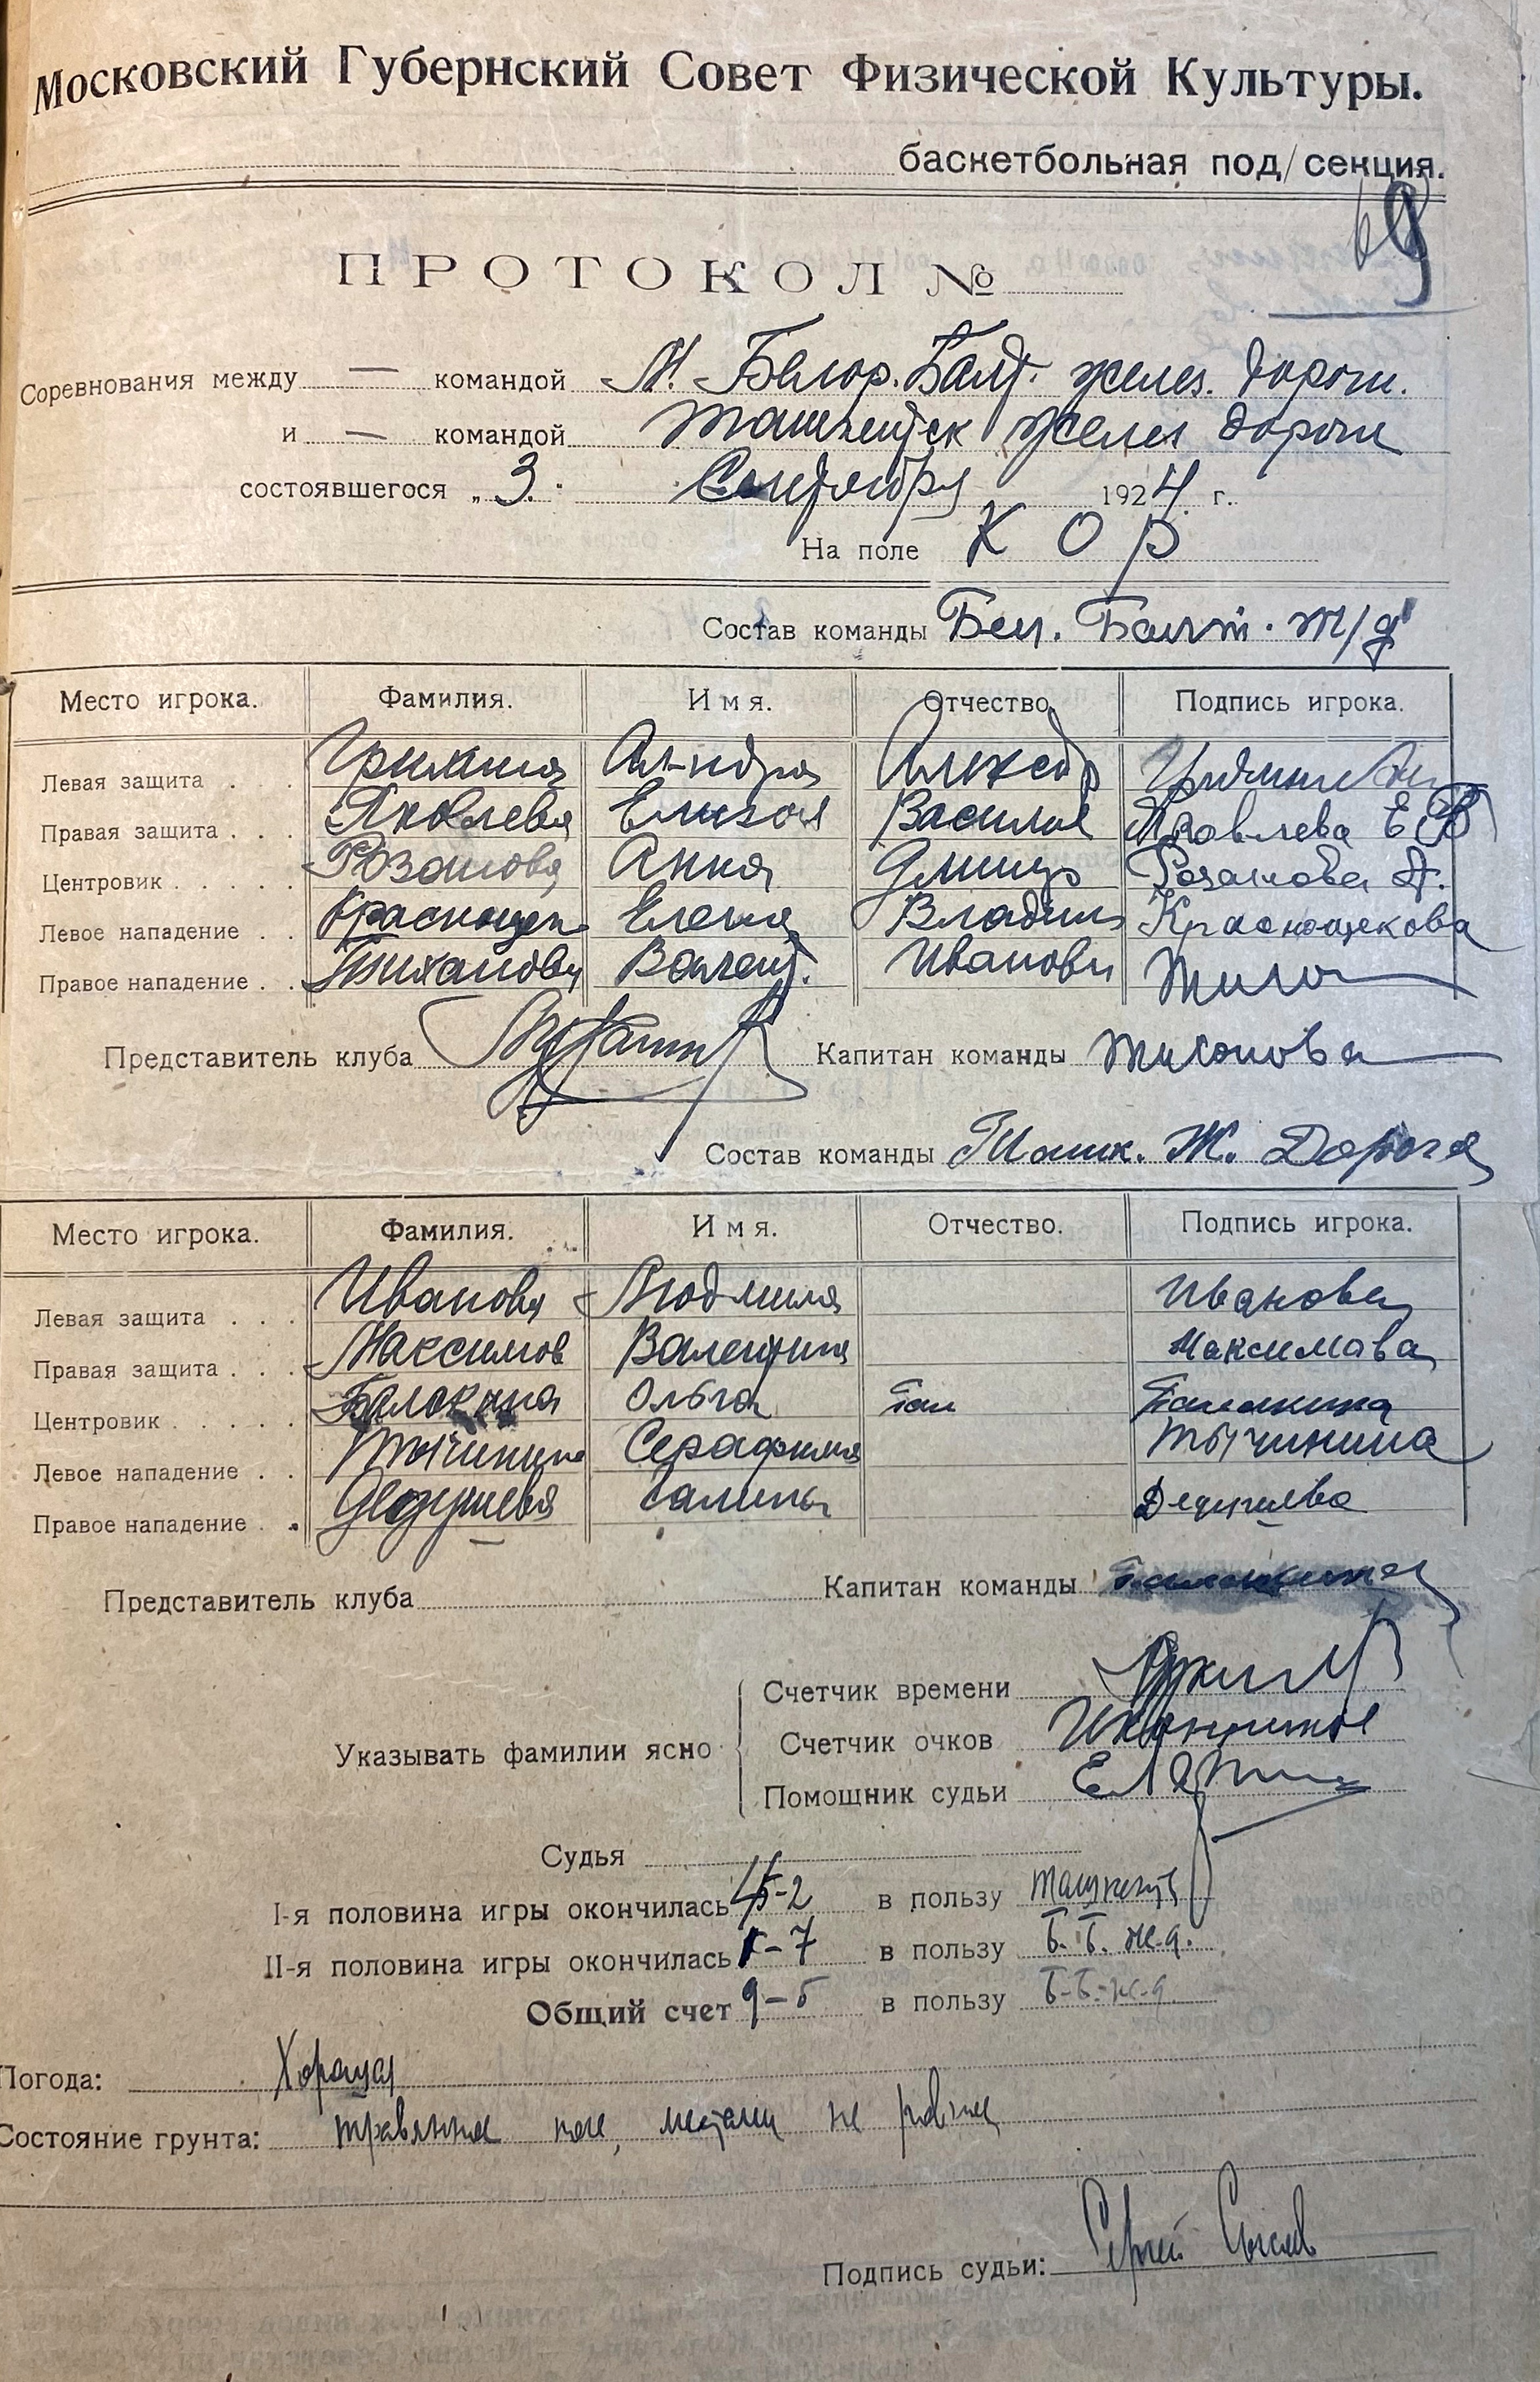 Московский Губернский Совет Физической Культуры.
баскетбольная под/секция.
69
ПРОТОКОЛ №
Соревнования между — командой М. Белор. Балт. желез. дороги.
и — командой Ташкентск желез дороги
состоявшегося „3. Сентября 1924 г.
На поле К О Р
Состав команды Бел. Балт. ж/д
Место игрока. Фамилия. Имя. Отчество. Подпись игрока.
Левая защита . . . Ал-ндра Александ
Правая защита . . . Яковлева Елизав Василье Яковлева Е В
Центровик . . . . . Розанова Анна Дмитр Розанова А.
Левое нападение . . Краснощек Елена Владим Краснощекова
Правое нападение . . Тиханова Валент. Ивановн
Представитель клуба Капитан команды Тихонова
Состав команды Ташк. Ж. Дорога
Место игрока. Фамилия. Имя. Отчество. Подпись игрока.
Левая защита . . . Иванова Людмила Иванова
Правая защита . . . Максимов Валентина Максимава
Центровик . . . . . Балакина Ольга Гал
Левое нападение . . Тычинина Серафима Тычинина
Правое нападение . . Дедушева Галина Дедушева
Представитель клуба Капитан команды
Указывать фамилии ясно
Счетчик времени
Счетчик очков
Помощник судьи
Судья
I-я половина игры окончилась 4-2 в пользу Ташкента
II-я половина игры окончилась 1-7 в пользу Б. Б. ж.д.
Общий счет 9-5 в пользу Б-Б-ж.д.
Погода: Хорошая
Состояние грунта: травянное поле, местами не ровное
Подпись судьи: Сергей Сысоев